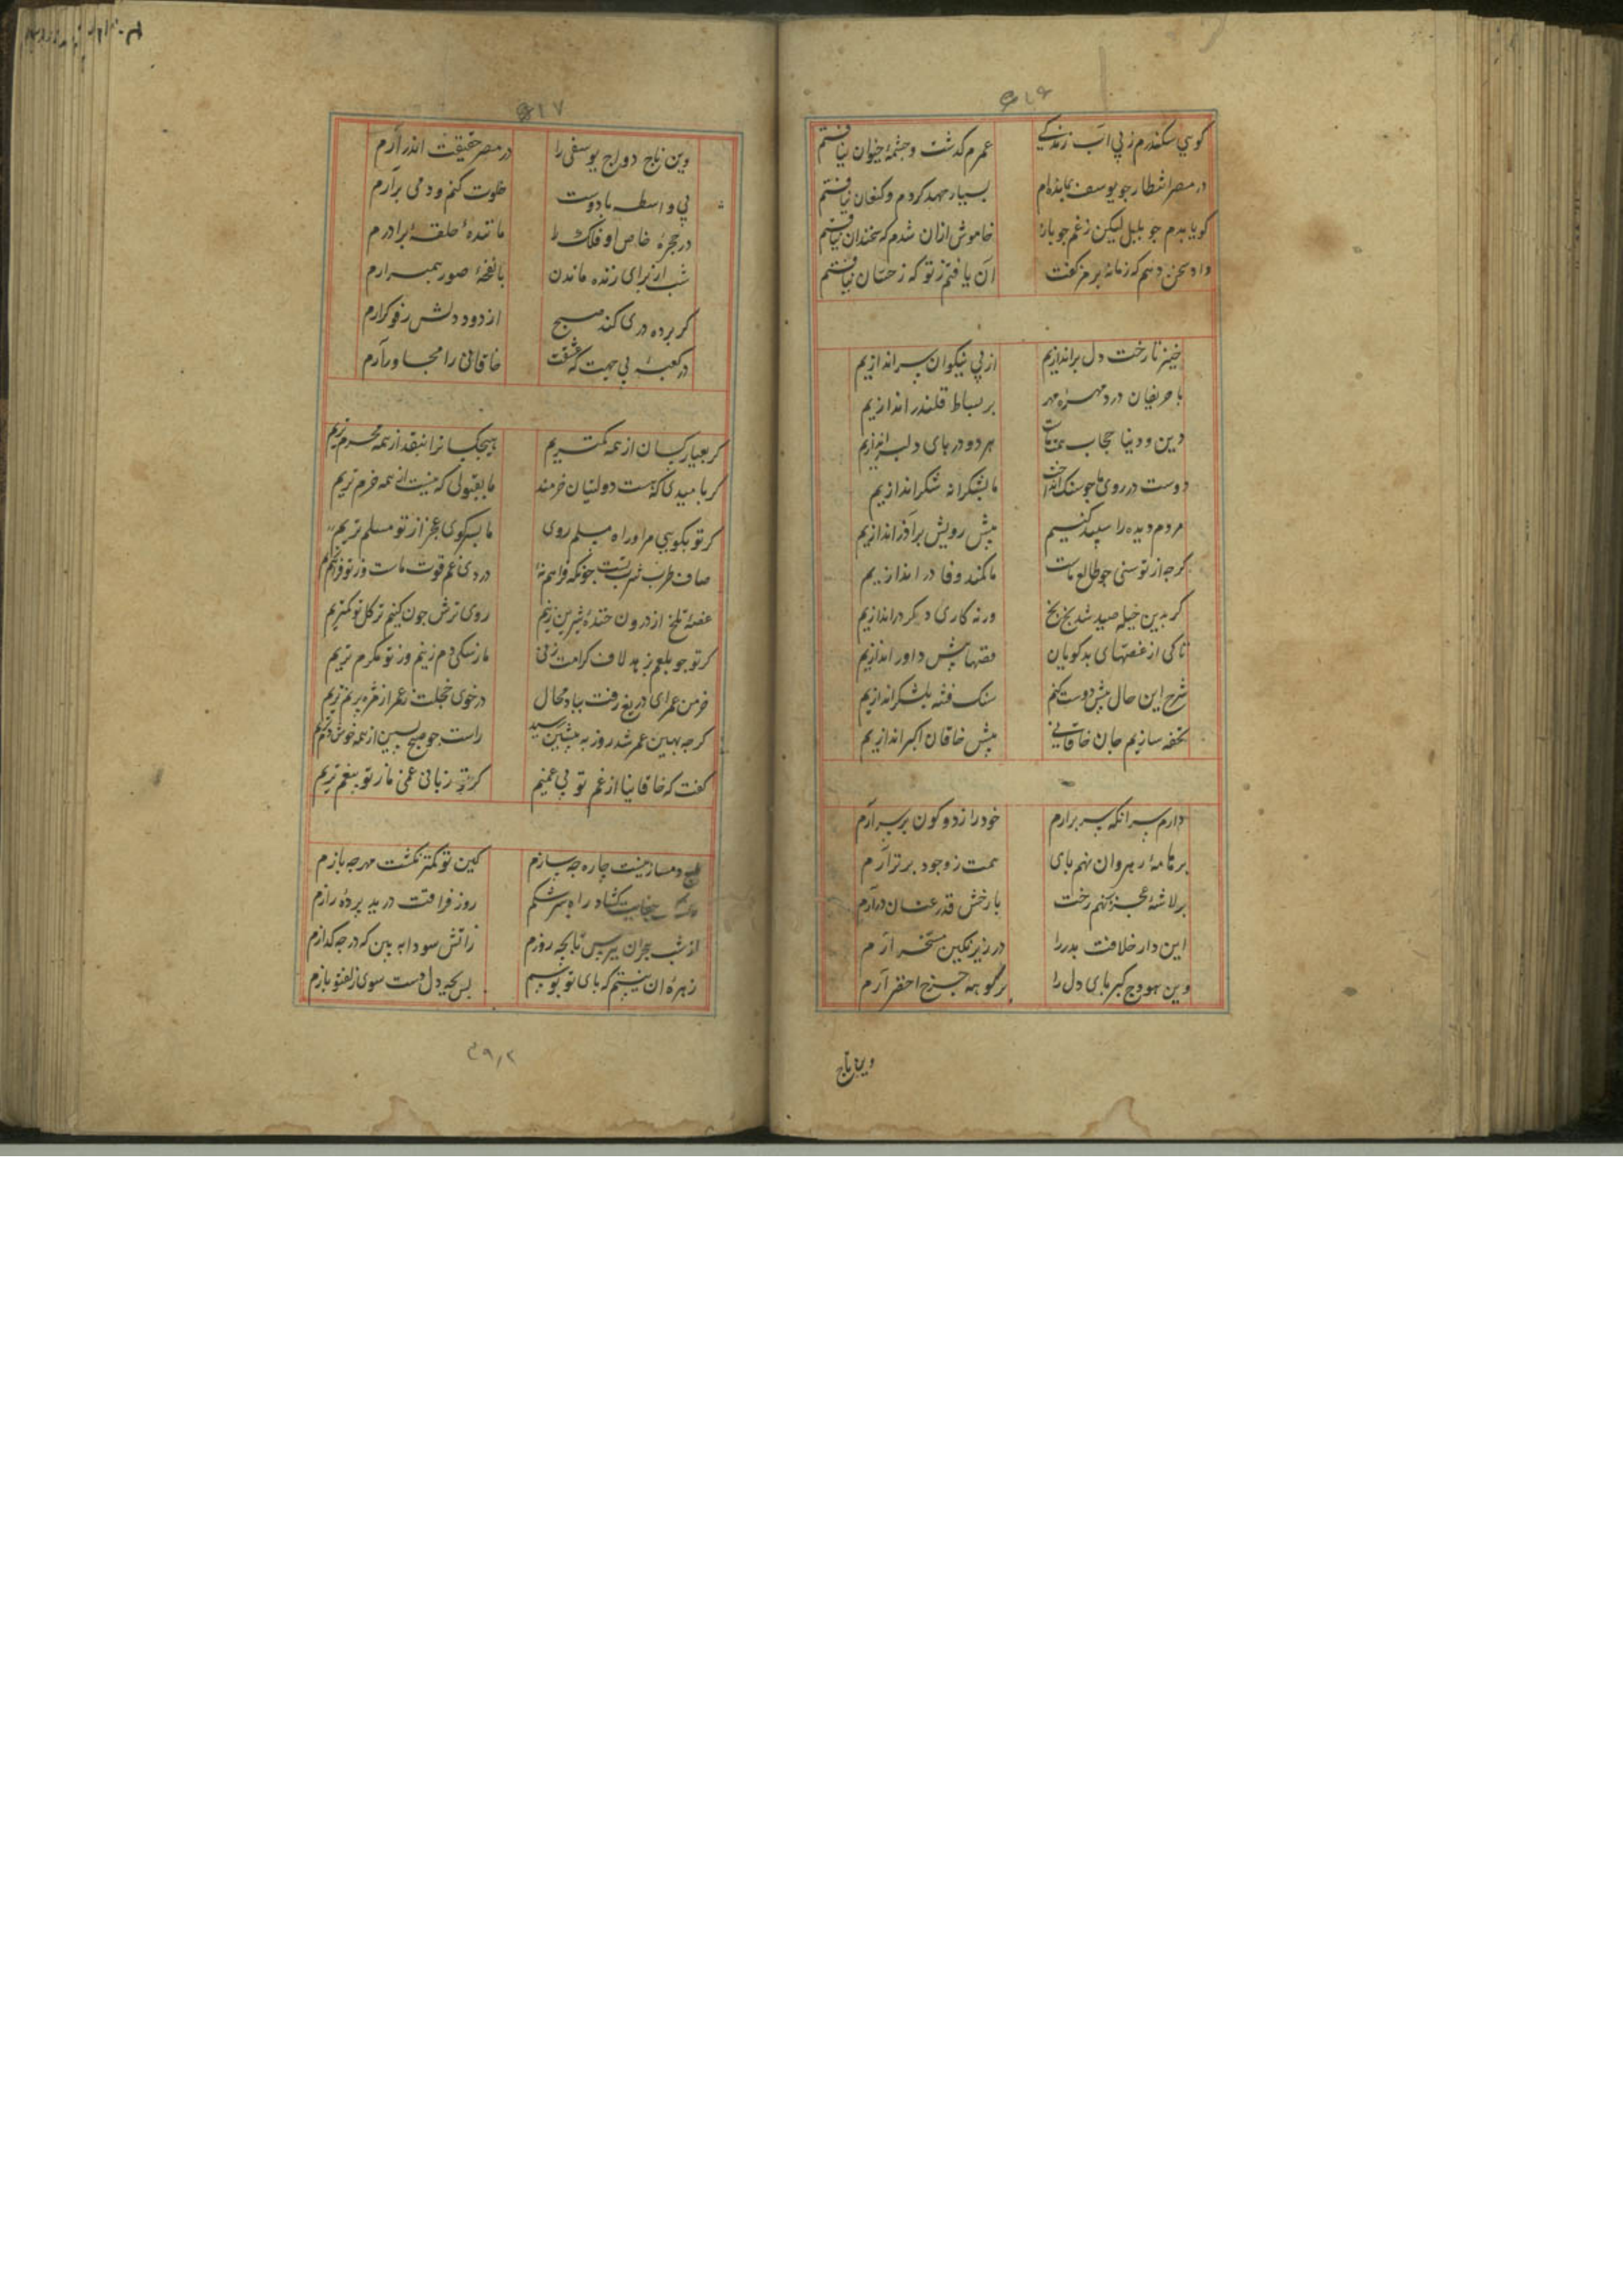 ۵۱۶
گوسي سکندرم ز پي آب زندگے عمرم کدشت و چشمهٔ حیوان نیافتم
در مصر انتظار جو یوسف بمانده‌ام بسیار جهد کردم و کنعان نیافتم
کویا بدم جو بلبل لیکن زغم جو باز خاموش ازان شدم که سخندان نیافتم
داد سخن دهم که زمانه برمز کفت آن یافتم ز تو که ز حسان نیافتم
خیز تا رخت دل براندازیم از پي نیکوان سراندازیم
با حریفان درد مهرهٔ مهر بر بساط قلندر اندازیم
دین و دنیا حجاب همت ماست هر دو در بای دلبر اندازیم
دوست در روی ما جو سنک انداخت ما بشکرانه شکر اندازیم
مردم دیده را سپید کنیم پیش رویش بر آذر اندازیم
کرجه از توسنی جو طالع ماست ما کمند وفا در اندازیم
کر بدین حیله صید شد بخ بخ ورنه کاری دکر در اندازیم
تا کی از غصتهای بدکویان قصتها پیش داور اندازیم
شرح این حال پیش دوست کنم سنک فتنه بلشکر اندازیم
تحفه سازیم جان خاقانیي پیش خاقان اکبر اندازیم
دارم سر انکه سر برارم خود را ز دو کون بر سر آرم
بر نامهٔ رهروان نهم بای همت ز وجود برتر آرم
بر لاشهٔ عجز برنهم رخت با رخش قدر عنان در آرم
این دار خلافت بدر را در زیر نکین مسخر آرم
وین هودج کبریای دل را بر کوههٔ جرخ اخضر آرم
وین تاج
۵۱۷
وین تاج دواج یوسفی را در مصر حقیقت اندر آرم
بي واسطه با دوست خلوت کنم و دمی برآرم
در حجرهٔ خاص او فلک را مانندهٔ حلقهٔ بر درم
شب از برای زنده ماندن با نفخهٔ صور همبرارم
کر برده دری کند صبح از دود دلش رفوکرارم
در کعبهٔ بي جهت که عشقت خاقانی را مجاور آرم
کر بعیار کسان از همه کمتریم هیچکسانرا بنقد از همه محرم تریم
کر بامیدی که هست دولتیان خرمند ما بقبولی که نیست از همه خرم تریم
کر تو بکوسي مراد راه مسلم روی ما بسر کوی عجز از تو مسلم تریم
صاف طرب شربتست جونکه فراهم نهٔ دردی غم قوت ماست وز تو فراهم تریم
غصهٔ تلخ از درون خندهٔ شیرین زنیم روی ترش جون کنیم نز کل تو کمتریم
کر تو جو بلعم بزهد لاف کرامت زنی ما ز سکی دم زنیم وز تو مکرم تریم
خرمن عمر ای دریغ رفت بباد محال در خوی خجلت ز عمر از مژه برنم تریم
کرجه بهین عمر شد روز به پیشین رسید راست جو صبح پسین از همه خوش دم تریم
کفت که خاقانیا از غم تو بي غمیم کرتو زبانی غمی ما ز تو بیغم تریم
دمساز نیست جاره جه سازم کین تو کمتر نکشت مهر جه بازم
جنایت کشاد راه سرشکم روز فراقت درید بردهٔ رازم
از شب هجران ببرس تا بجه روزم ز آتش سودا به بین که در جه کدازم
زهرهٔ آن نیستم که بای تو بوسم بس بجه دل دست سوی زلف تو یازم